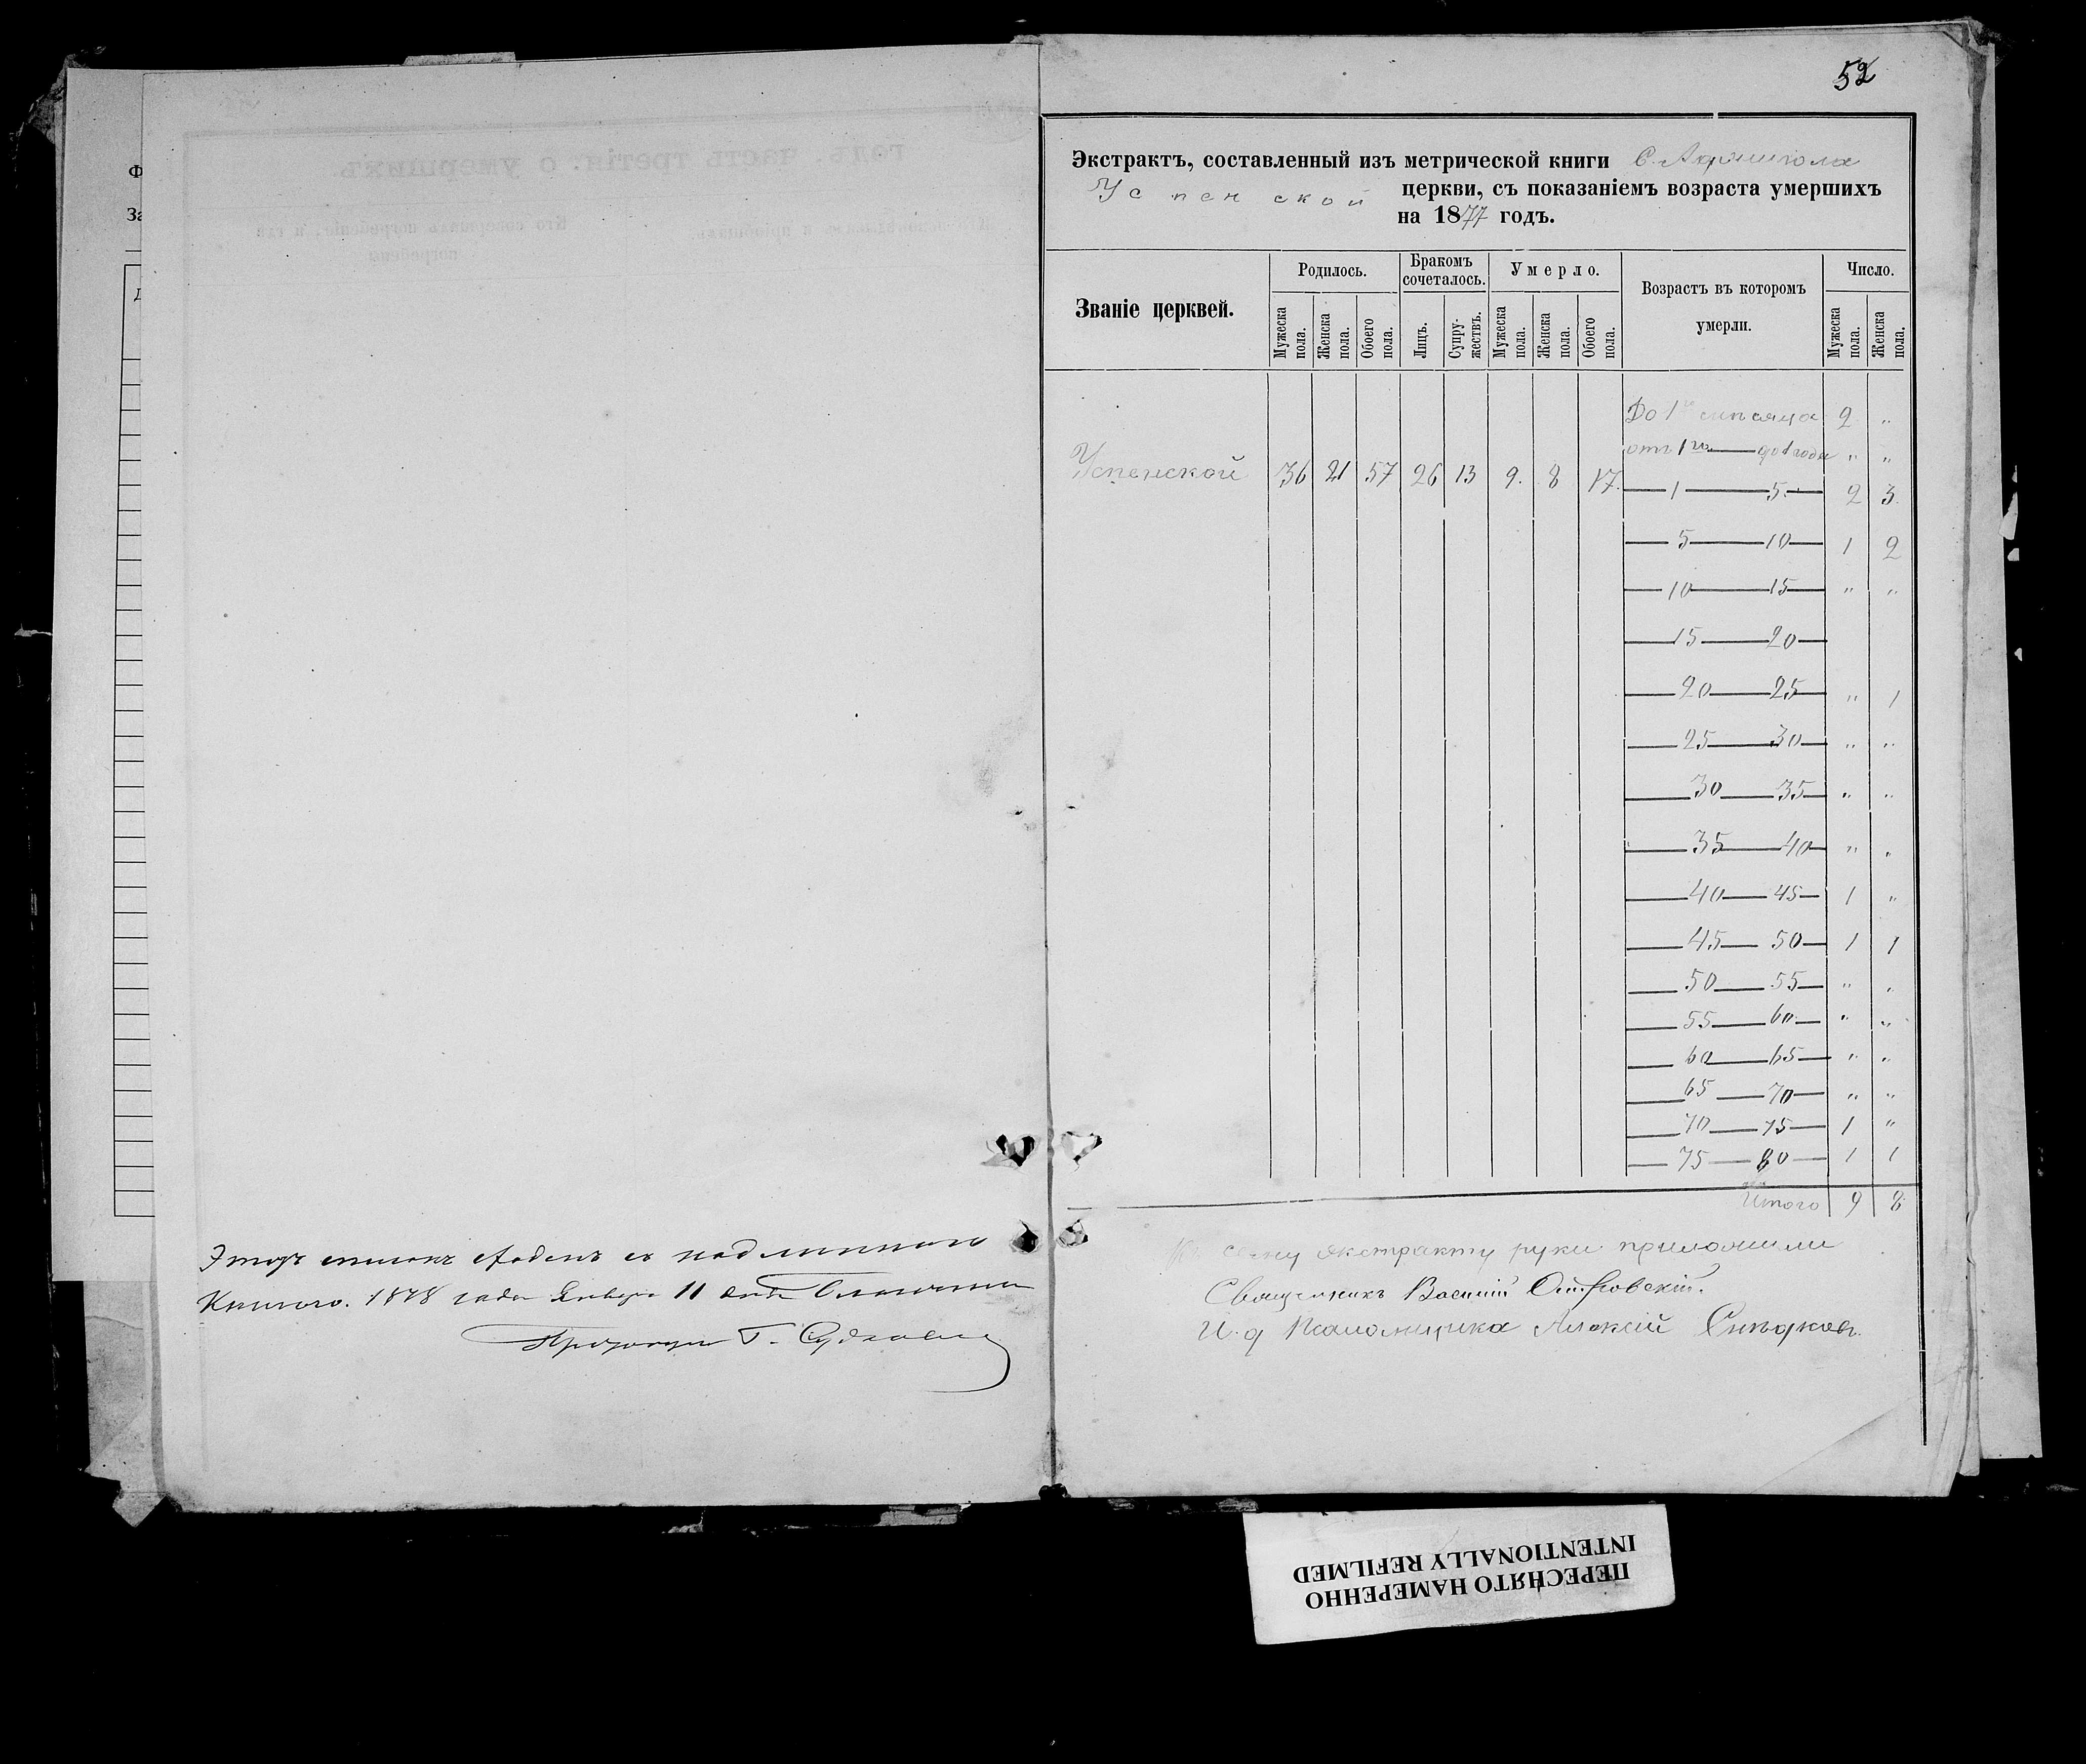 52
Экстрактъ, составленный изъ метрической книги С.
Успенской церкви, съ показаніемъ возраста умершихъ
на 1877 годъ.
Званіе церквей.
Родилось.
Бракомъ сочеталось.
Умерло.
Возрастъ въ которомъ умерли.
Число.
Мужеска пола. Женска пола. Обоего пола. Лицъ. Супружествъ. Мужеска пола. Женска пола. Обоего пола. Мужеска пола. Женска пола.
До 1го мѣсяца 2 "
отъ 1го — до 1 года " "
Успенской 36 21 57 26 13 9. 8 17.
— 1 — 5. — 2 3.
— 5 — 10 — 1 2
— 10 — 15 — " "
— 15 — 20 —
— 20 — 25 — " 1
— 25 — 30 — " "
— 30 — 35 — " "
— 35 — 40 — " "
— 40 — 45 — 1 "
— 45 — 50 — 1 1
— 50 — 55 — " "
— 55 — 60 — " "
— 60 — 65 — " "
— 65 — 70 — " "
— 70 — 75 — 1 "
— 75 — 80 — 1 1
Итого 9 8
К сему экстракту руки приложили
Священникъ Василій
И. д Псаломщика Алексѣй
Этотъ списокъ съ подлинною
Книгою. 1878 года Января 11 дня
Г.
ПЕРЕСНЯТО НАМЕРЕННО
INTENTIONALLY REFILMED